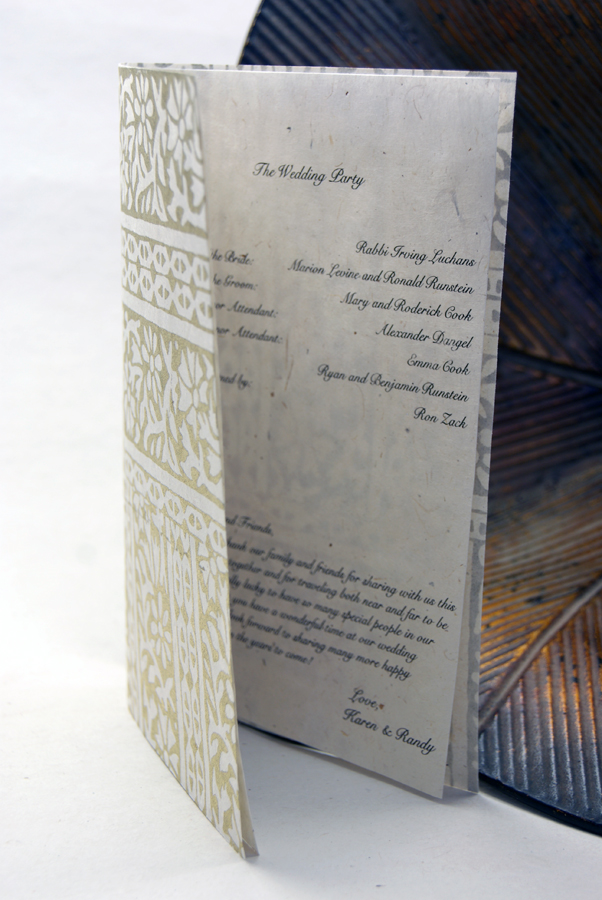 The Wedding Party
Rabbi Irving Luchans
the Bride: Marion Levine and Ronald Runstein
the Groom: Mary and Roderick Cook
Attendant: Alexander Dangel
Attendant: Emma Cook
Ryan and Benjamin Runstein
by: Ron Zack
Friends,
our family and friends for sharing with us this
together and for traveling both near and far to be
lucky to have so many special people in our
you have a wonderful time at our wedding
forward to sharing many more happy
the years to come!
Love,
Karen & Randy